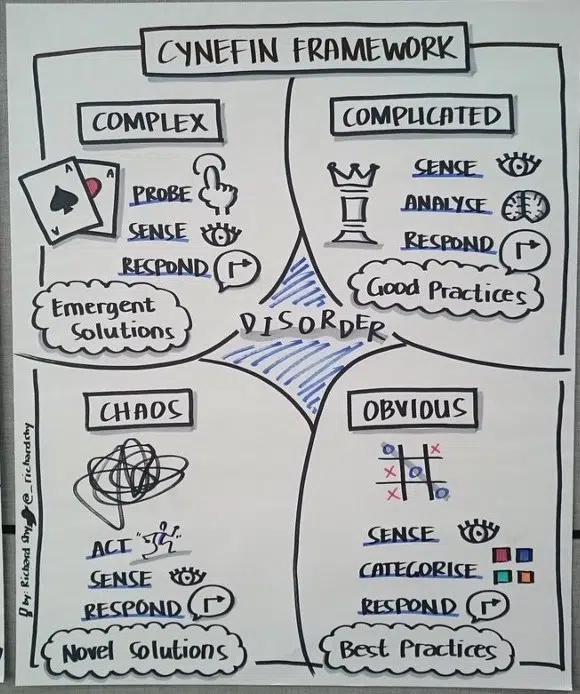 CYNEFIN FRAMEWORK
COMPLEX
A
A
A
PROBE
SENSE
RESPOND
Emergent
Solutions
COMPLICATED
SENSE
ANALYSE
RESPOND
Good Practices
DISORDER
CHAOS
ACT
SENSE
RESPOND
Novel Solutions
OBVIOUS
O X
X O
X O
SENSE
CATEGORISE
RESPOND
Best Practices
by: Richard Shy @_richardshy